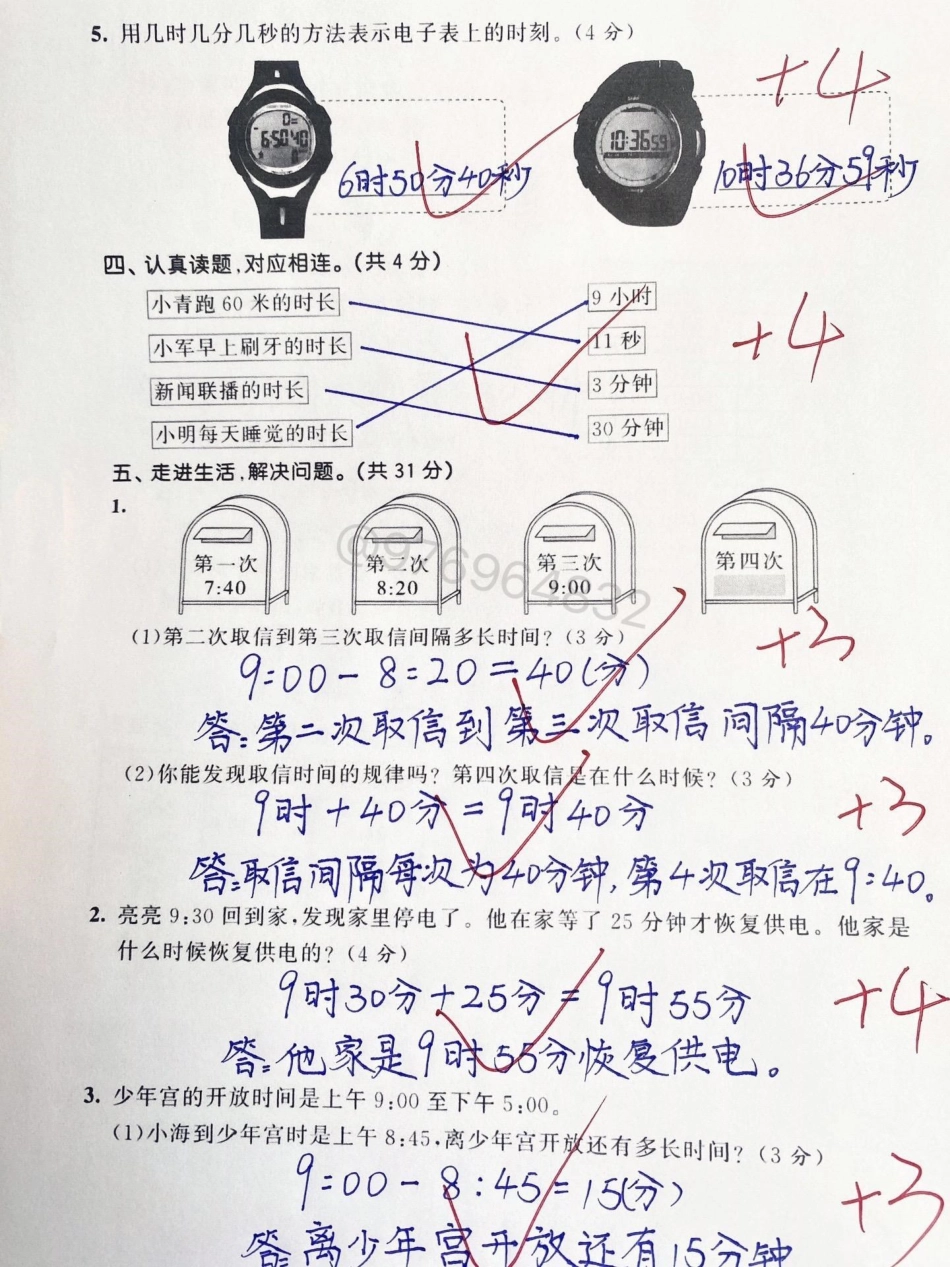 5. 用几时几分几秒的方法表示电子表上的时刻。(4 分)
+4
6:50 40
10:36 59
6时50分40秒
10时36分59秒
四、认真读题,对应相连。(共 4 分)
小青跑 60 米的时长
9 小时
小军早上刷牙的时长
11 秒
+4
新闻联播的时长
3 分钟
小明每天睡觉的时长
30 分钟
五、走进生活,解决问题。(共 31 分)
1.
第一次
7:40
第二次
8:20
第三次
9:00
第四次
@976964832
(1)第二次取信到第三次取信间隔多长时间? (3 分)
+3
9:00-8:20=40(分)
答:第二次取信到第三次取信间隔40分钟。
(2)你能发现取信时间的规律吗? 第四次取信是在什么时候? (3 分)
9时+40分=9时40分
+3
答:取信间隔每次为40分钟,第4次取信在9:40。
2. 亮亮 9:30 回到家,发现家里停电了。他在家等了 25 分钟才恢复供电。他家是
什么时候恢复供电的? (4 分)
9时30分+25分=9时55分
+4
答:他家是9时55分恢复供电。
3. 少年宫的开放时间是上午 9:00 至下午 5:00。
(1)小海到少年宫时是上午 8:45,离少年宫开放还有多长时间? (3 分)
9:00-8:45=15(分)
+3
答:离少年宫开放还有15分钟